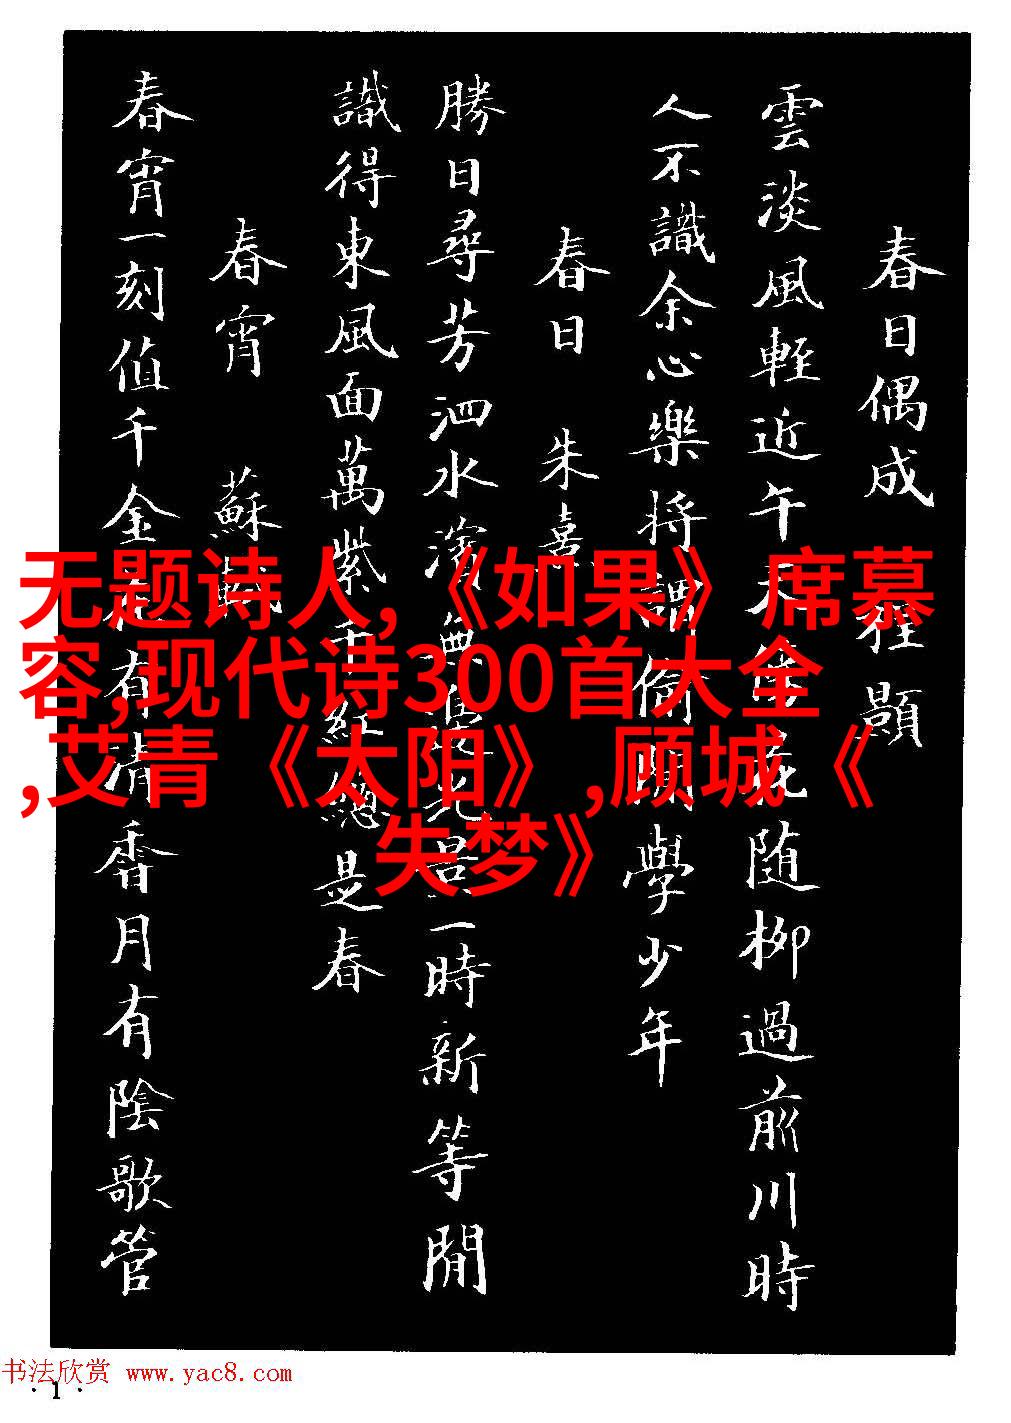 春日偶成 程顥
雲淡風輕近午天 花随柳過前川時
人不識余心樂將謂偷閑學少年
春日 朱熹
勝日尋芳泗水濱無邊光景一時新等閒
識得東風面萬紫千紅總是春
春宵 蘇軾
春宵一刻值千金花有清香月有陰歌管
无题诗人,《如果》席慕
容,现代诗300首大全
,艾青《太阳》,顾城《
失梦》
书法欣赏 www.yac8.com
·1·